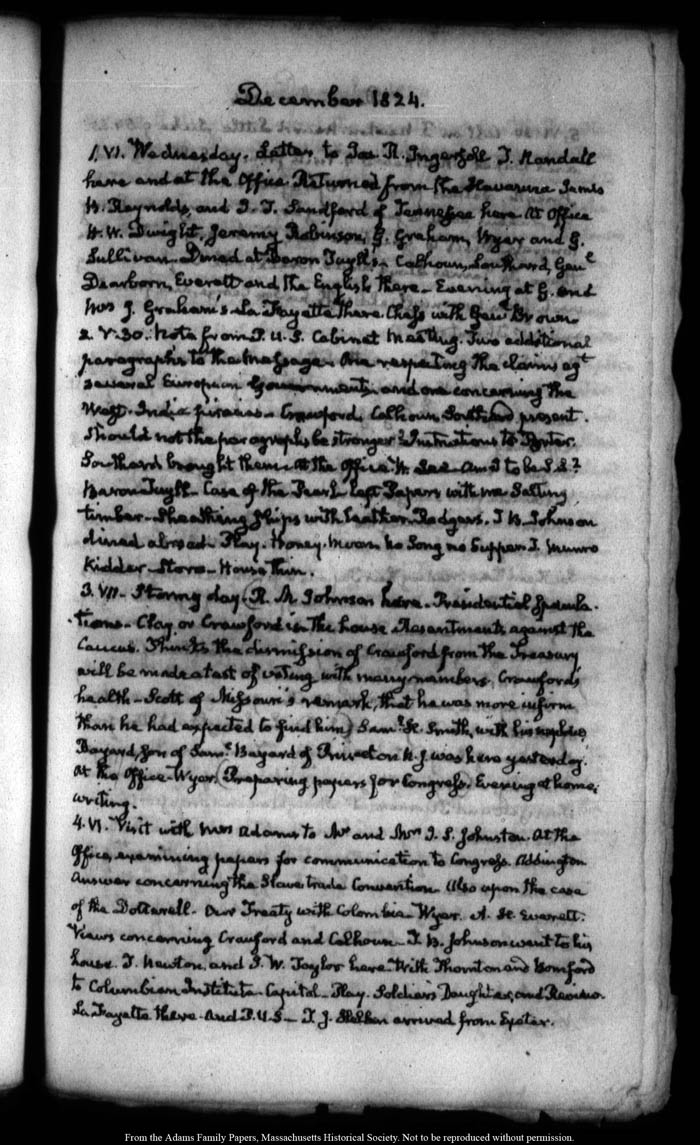 December 1824.
1. VI. Wednesday. Letters to Jos. R. Ingersoll T. Randall
here and at the Office. Returned from the Havanna James
B. Reynolds, and J. T. Sandford of Tennessee here. At Office
H. W. Dwight, Jeremy Robinson, G. Graham, Wyer and G.
Sullivan. Dined at Baron Tuyll's. Calhoun, Southard, Genl
Dearborn, Everett and the English there. Evening at G. and
Mrs J. Graham's. La Fayette there. Chess with Genl Brown
2. V:30. Note from P. U. S. Cabinet Meeting. Two additional
paragraphs to the Message. One respecting the claims agt
several European Governments and one concerning the
West-India piracies. Crawford, Calhoun, Southard present.
Should not the paragraphs be stronger? Instructions to Porter.
Southard brought them at the Office. Am I to be S.S.?
Baron Tuyll. Case of the Pearl left Papers with me. Salting
timber. Sheathing Ships with leather. Rodgers. J B. Johnson
dined abroad. Play. Honey-Moon. No Song no Supper. J. Munro
Kidder. Storo. House thin.
3. VII. Stormy day. R. M. Johnson here. Presidential Specula-
tions. Clay or Crawford in the house. Resentments against the
Caucus. Thinks the dismission of Crawford from the Treasury
will be made a test of voting with many members. Crawford's
health. Scott of Missouri's remark, that he was more infirm
than he had expected to find him. Saml H. Smith, with his nephew
Bayard, Son of Saml Bayard of Princeton N.J. was here yesterday.
At the Office. Wyer. Preparing papers for Congress. Evening at home,
writing.
4. VI. Visit with Mrs Adams to Mr and Mrs J. S. Johnston. At the
Office, examining papers for communication to Congress. Addington
Answer concerning the Slave trade Convention. Also upon the case
of the Dotterell. Our Treaty with Colombia. Wyer. A. H. Everett.
Views concerning Crawford and Calhoun. T. B. Johnson went to his
house. T. Newton, and J. W. Taylor here. With Thornton and Bomford
to Columbian Institute. Capitol. Play. Soldiers Daughter, and Review.
La Fayette there. And P. U.S. T. J. arrived from Exeter.
From the Adams Family Papers, Massachusetts Historical Society. Not to be reproduced without permission.